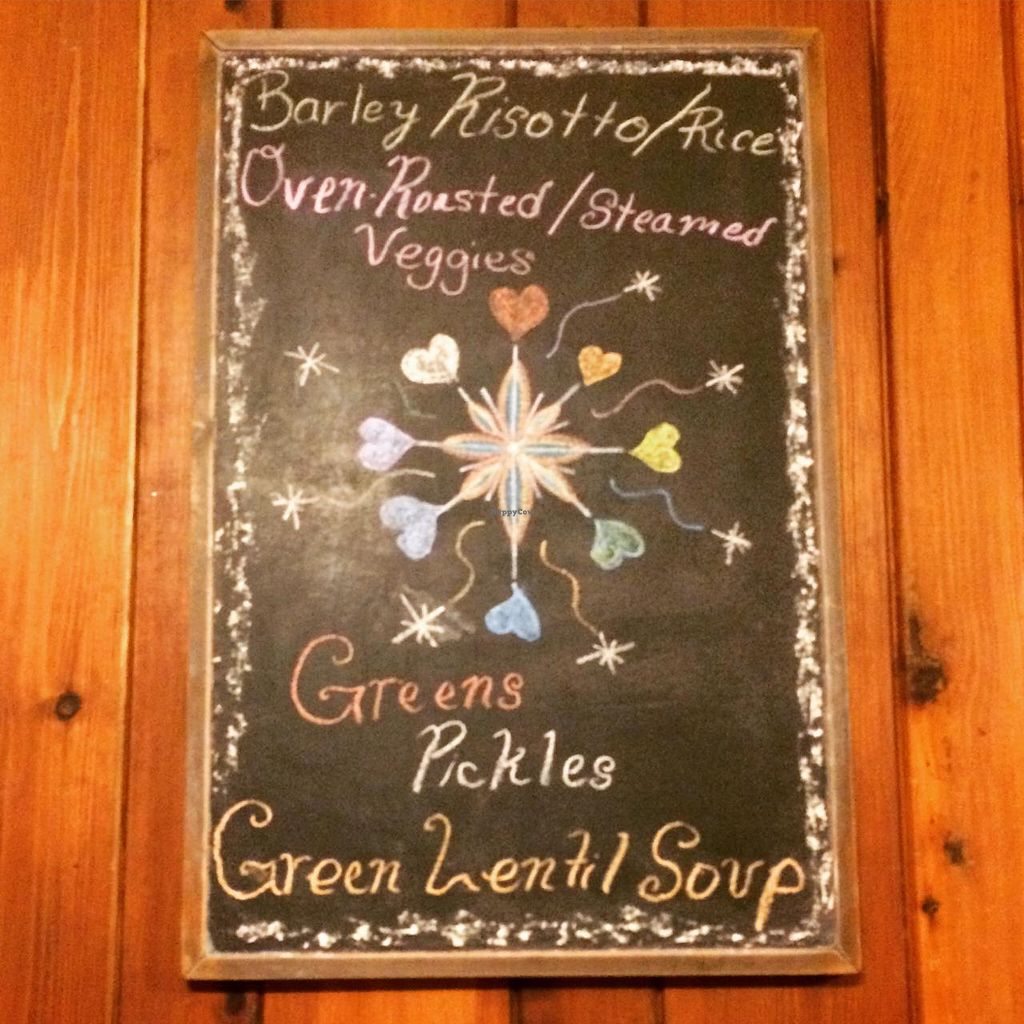 Barley Risotto/Rice
Oven-Roasted/Steamed
Veggies
HappyCow
Greens
Pickles
Green Lentil Soup